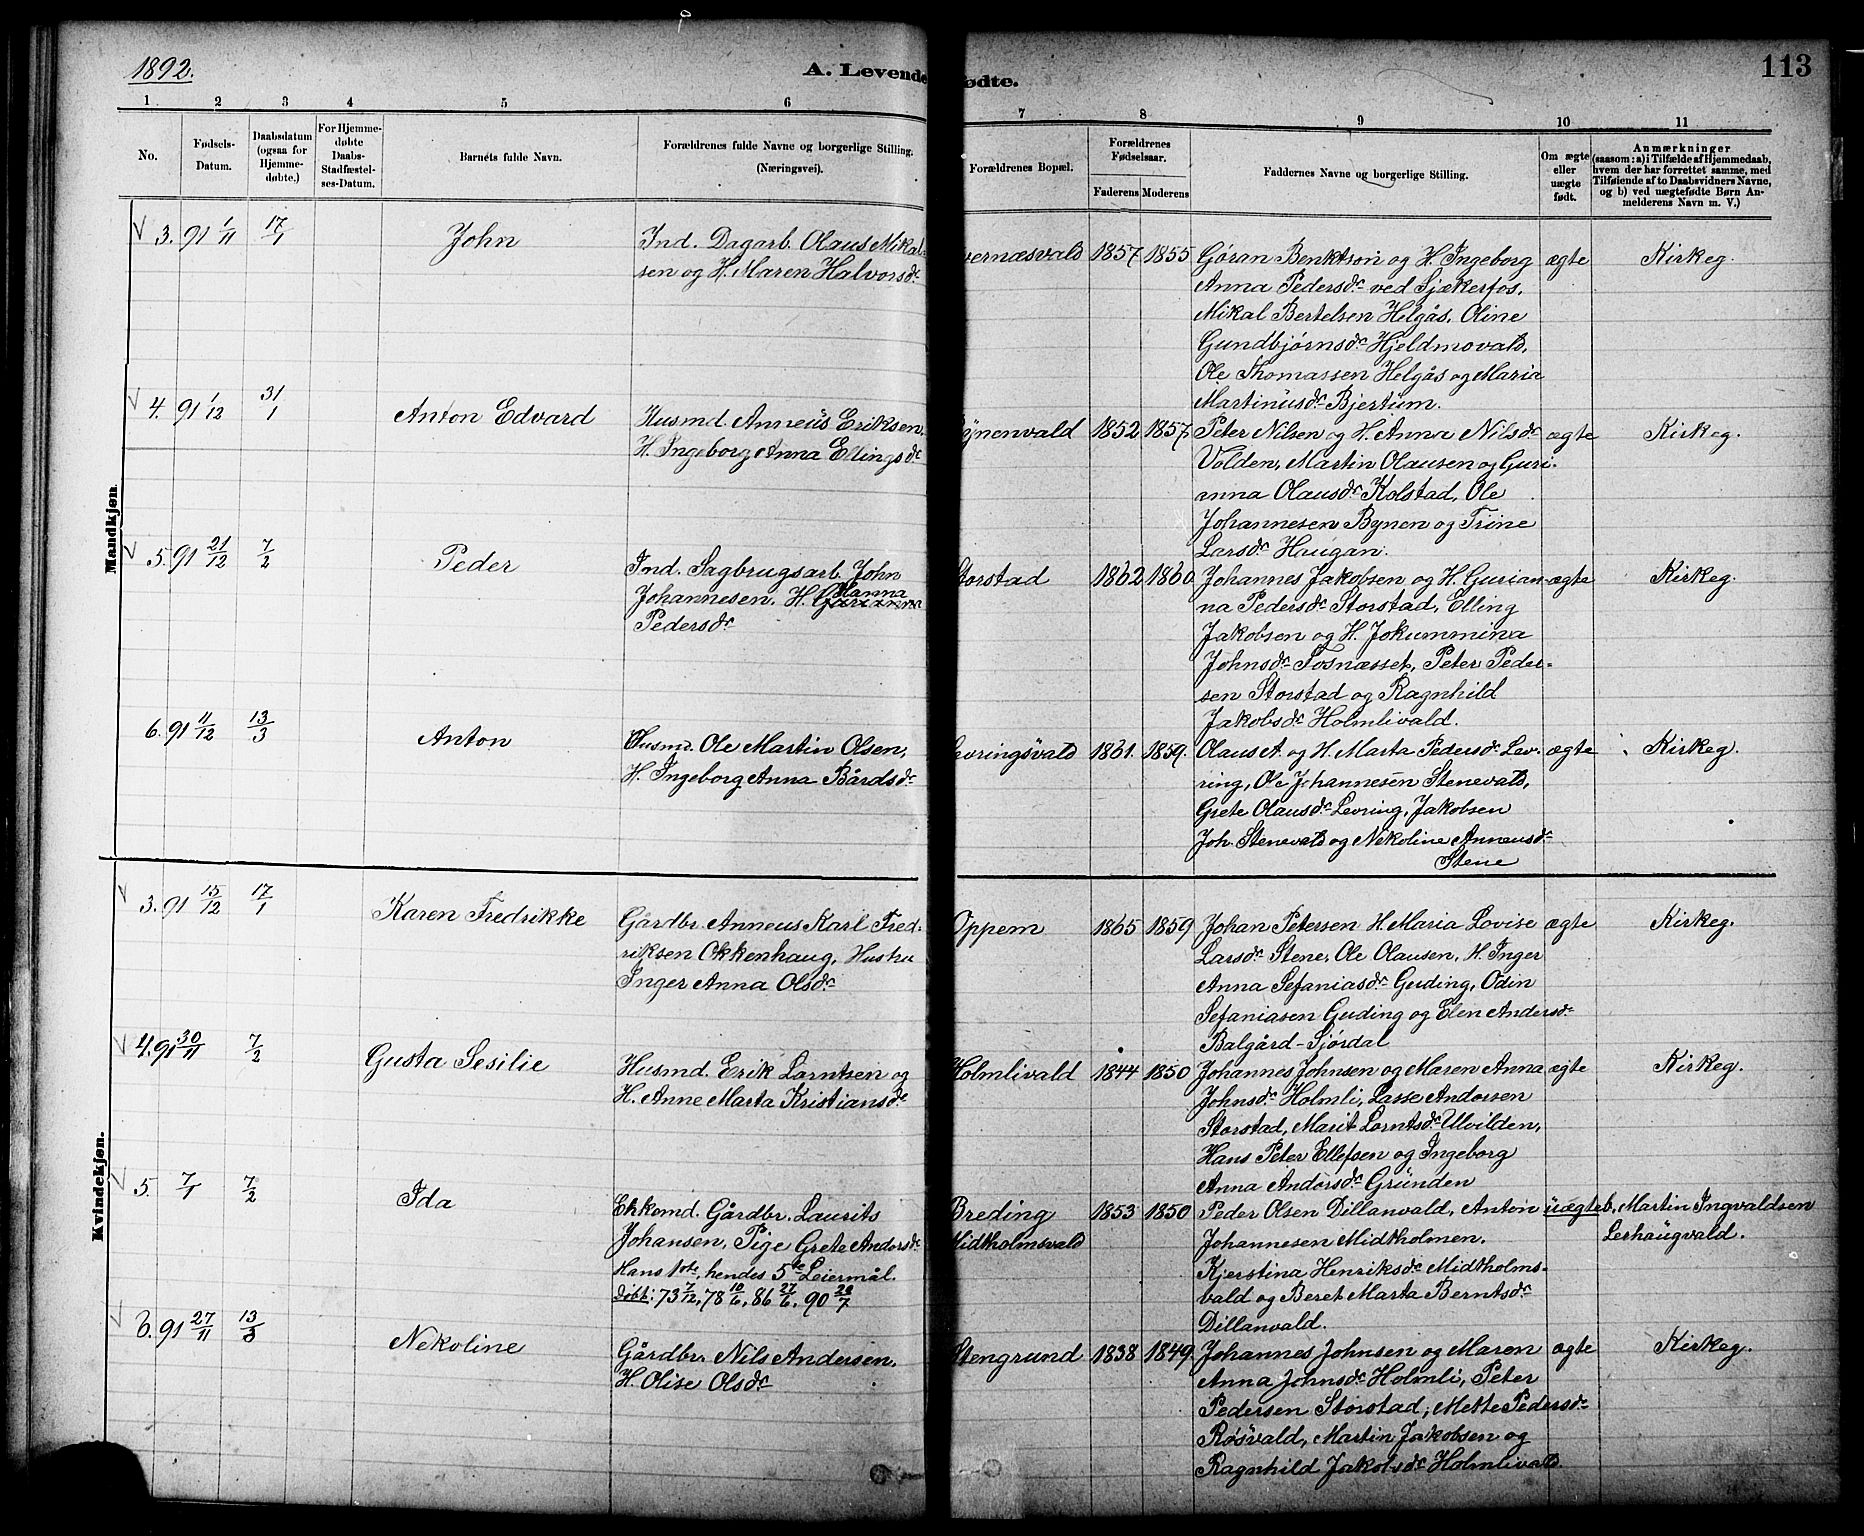 1892.
A. Levende
ødte.
113
1 2 3 4 5 6 7 8 9 10 11
No.
Fødsels-
Datum.
Daabsdatum
(ogsaa for
Hjemme-
døbte.)
For Hjemme-
døbte
Daabs-
Stadfæstel-
ses-Datum.
Barnets fulde Navn.
Forældrenes fulde Navne og borgerlige Stilling.
(Næringsvei).
Forældrenes Bopæl.
Forældrenes
Fødselsaar.
Faderens Moderens
Faddernes Navne og borgerlige Stilling.
Om ægte
eller
uægte
født.
Anmærkninger
(saasom: a) i Tilfælde af Hjemmedaab,
hvem der har forrettet samme, med
Tilføiende af to Daabsvidners Navne,
og b) ved uægtefødte Børn An-
melderens Navn m. V.)
Mandkjøn
V 3. 91 1/11 17/1
John
Ind. Dagarb. Olaus Mikal-
sen og H. Maren Halvorsdr
vernæsvald 1857 1855
Gøran Benktson og H. Ingeborg
Anna Pedersdr ved Sjækerfos,
Mikal Bertelsen Helgås, Oline
Gundbjørnsdr Hjeldmovald,
Ole Thomassen Helgås og Maria
Martinusdr Bjertum.
ægte
Kirkeg.
V 4. 91 1/12 31/1
Anton Edvard
Husmd. Anneus Eriksen,
H. Ingeborg Anna Ellingsdr
ynenvald 1852 1857
Peter Nilsen og H. Anna Nilsdr
Volden, Martin Olausen og Guri-
anna Olausdr Kolstad, Ole
Johannesen Bynen og Trine
Larsdr Haugan.
ægte
Kirkeg.
V 5. 91 21/12 7/2
Peder
Ind. Sagbrugsarb. John
Johannesen, H. Gurianna Hanna
Pedersdr
Storstad 1862 1860
Johannes Jakobsen og H. Gurian-
na Pedersdr Storstad, Elling
Jakobsen og H. Jokummina
Johnsdr Fosnæsset, Peter Peder-
sen Storstad og Ragnhild
Jakobsdr Holmlivald.
ægte
Kirkeg.
6. 91 11/12 13/3
Anton
Husmd. Ole Martin Olsen,
H. Ingeborg Anna Bårdsdr
evringsvald 1861. 1859.
Olaus A. og H. Marta Pedersdr Lev-
ring, Ole Johannesen Stenevald,
Grete Olausdr Levring, Jakobsen
Joh. Stenevald og Nekoline Anneusdr
Stene
ægte
Kirkeg.
Kvindekjøn.
V 3. 91 15/12 17/1
Karen Fredrikke
Gårdbr. Anneus Karl Fred-
riksen Okkenhaug, Hustru
Inger Anna Olsdr
Oppem 1865 1859
Johan Petersen H. Maria Lovise
Larsdr Stene, Ole Olausen, H. Inger
Anna Sefaniasdr Guding, Odin
Sefaniasen Guding og Elen Andersdr
Balgård-Sjørdal
ægte
Kirkeg.
V 4. 91 30/11 7/2
Gusta Sesilie
Husmd. Erik Larntsen og
H. Anne Marta Kristiansdr
Holmlivald 1844 1850
Johannes Johnsen og Maren Anna
Johnsdr Holmli, Lasse Andorsen
Storstad, Marit Lorntsdr Ulvilden,
Hans Peter Ellefsen og Ingeborg
Anna Andorsdr Grunden
ægte
Kirkeg.
V 5. 7/1 7/2
Ida
Enkemd. Gårdbr. Laurits
Johansen, Pige Grete Andorsdr
Hans 1ste, hendes 5te Leiermål.
Døbt: 73 7/12, 78 10/6, 86 27/6, 90 20/7
Breding
Midtholmsvald 1853 1850
Peder Olsen Dillanvald, Anton
Johannesen Midtholmen.
Kjerstina Henriksdr Midtholms-
vald og Beret Marta Berntsdr
Dillanvald.
uægte
b, Martin Ingvaldsen
Lerhaugvald.
V 6. 91 27/11 13/3
Nekoline
Gårdbr. Nils Andersen,
H. Olise Olsdr
Stengrund 1838 1849.
Johannes Johnsen og Maren
Anna Johnsdr Holmli, Peter
Pedersen Storstad, Mette Pedersdr
Røsvald, Martin Jakobsen og
Ragnhild Jakobsdr Holmlivald.
ægte
Kirkeg.